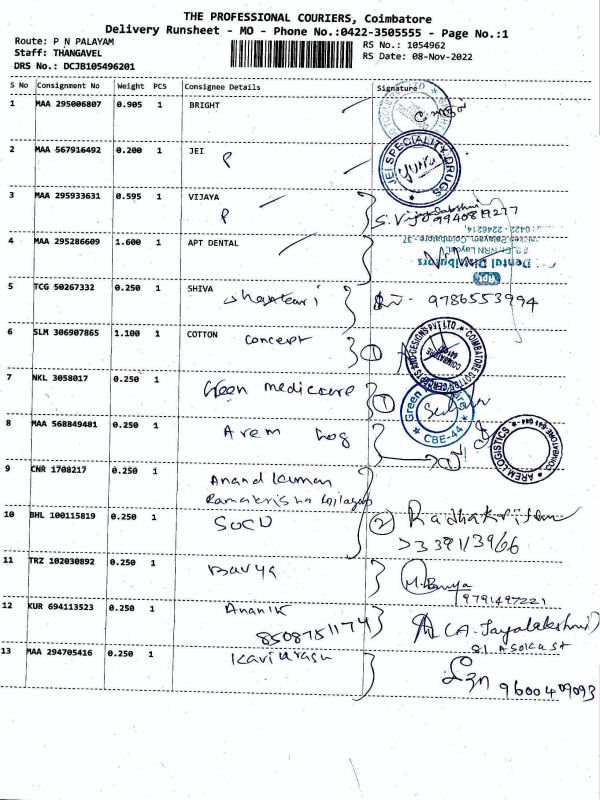 THE PROFESSIONAL COURIERS, Coimbatore
Delivery Runsheet - MO - Phone No.:0422-3505555 - Page No.:1
Route: P N PALAYAM
Staff: THANGAVEL
DRS No.: DCJB105496201
RS No.: 1054962
RS Date: 08-Nov-2022
S No Consignment No Weight PCS Consignee Details Signature
1 MAA 295006807 0.905 1 BRIGHT
2 MAA 567916492 0.200 1 JEI P
JEI SPECIALITY DRUGS
3 MAA 295933631 0.595 1 VIJAYA P
S. Vijayalakshmi
9940819277
4 MAA 295286609 1.600 1 APT DENTAL
0422 - 2246214,
Coimbatore - 37
Dental Distributors
5 TCG 50267332 0.250 1 SHIVA Shankari 9786553994
6 SLM 306907865 1.100 1 COTTON concept 1
COIMBATORE
7 NKL 3058017 0.250 1 Green medicare 1
Green
CBE-44
8 MAA 568849481 0.250 1 Arem Log
AREM LOGISTICS
9 CNR 1708217 0.250 1 Anand Kumar
Ramakrishna
10 BHL 100115819 0.250 1 SOCU 2 Radhakrishnan
11 TRZ 102030892 0.250 1 Bavya M. Bavya
9791497221
12 KUR 694113523 0.250 1
8508751174
(A. Jayalakshmi)
13 MAA 294705416 0.250 1
9600409093